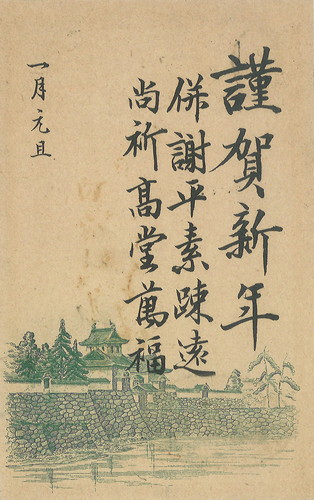 謹賀新年
併謝平素踈遠
尚祈高堂萬福
一月元旦